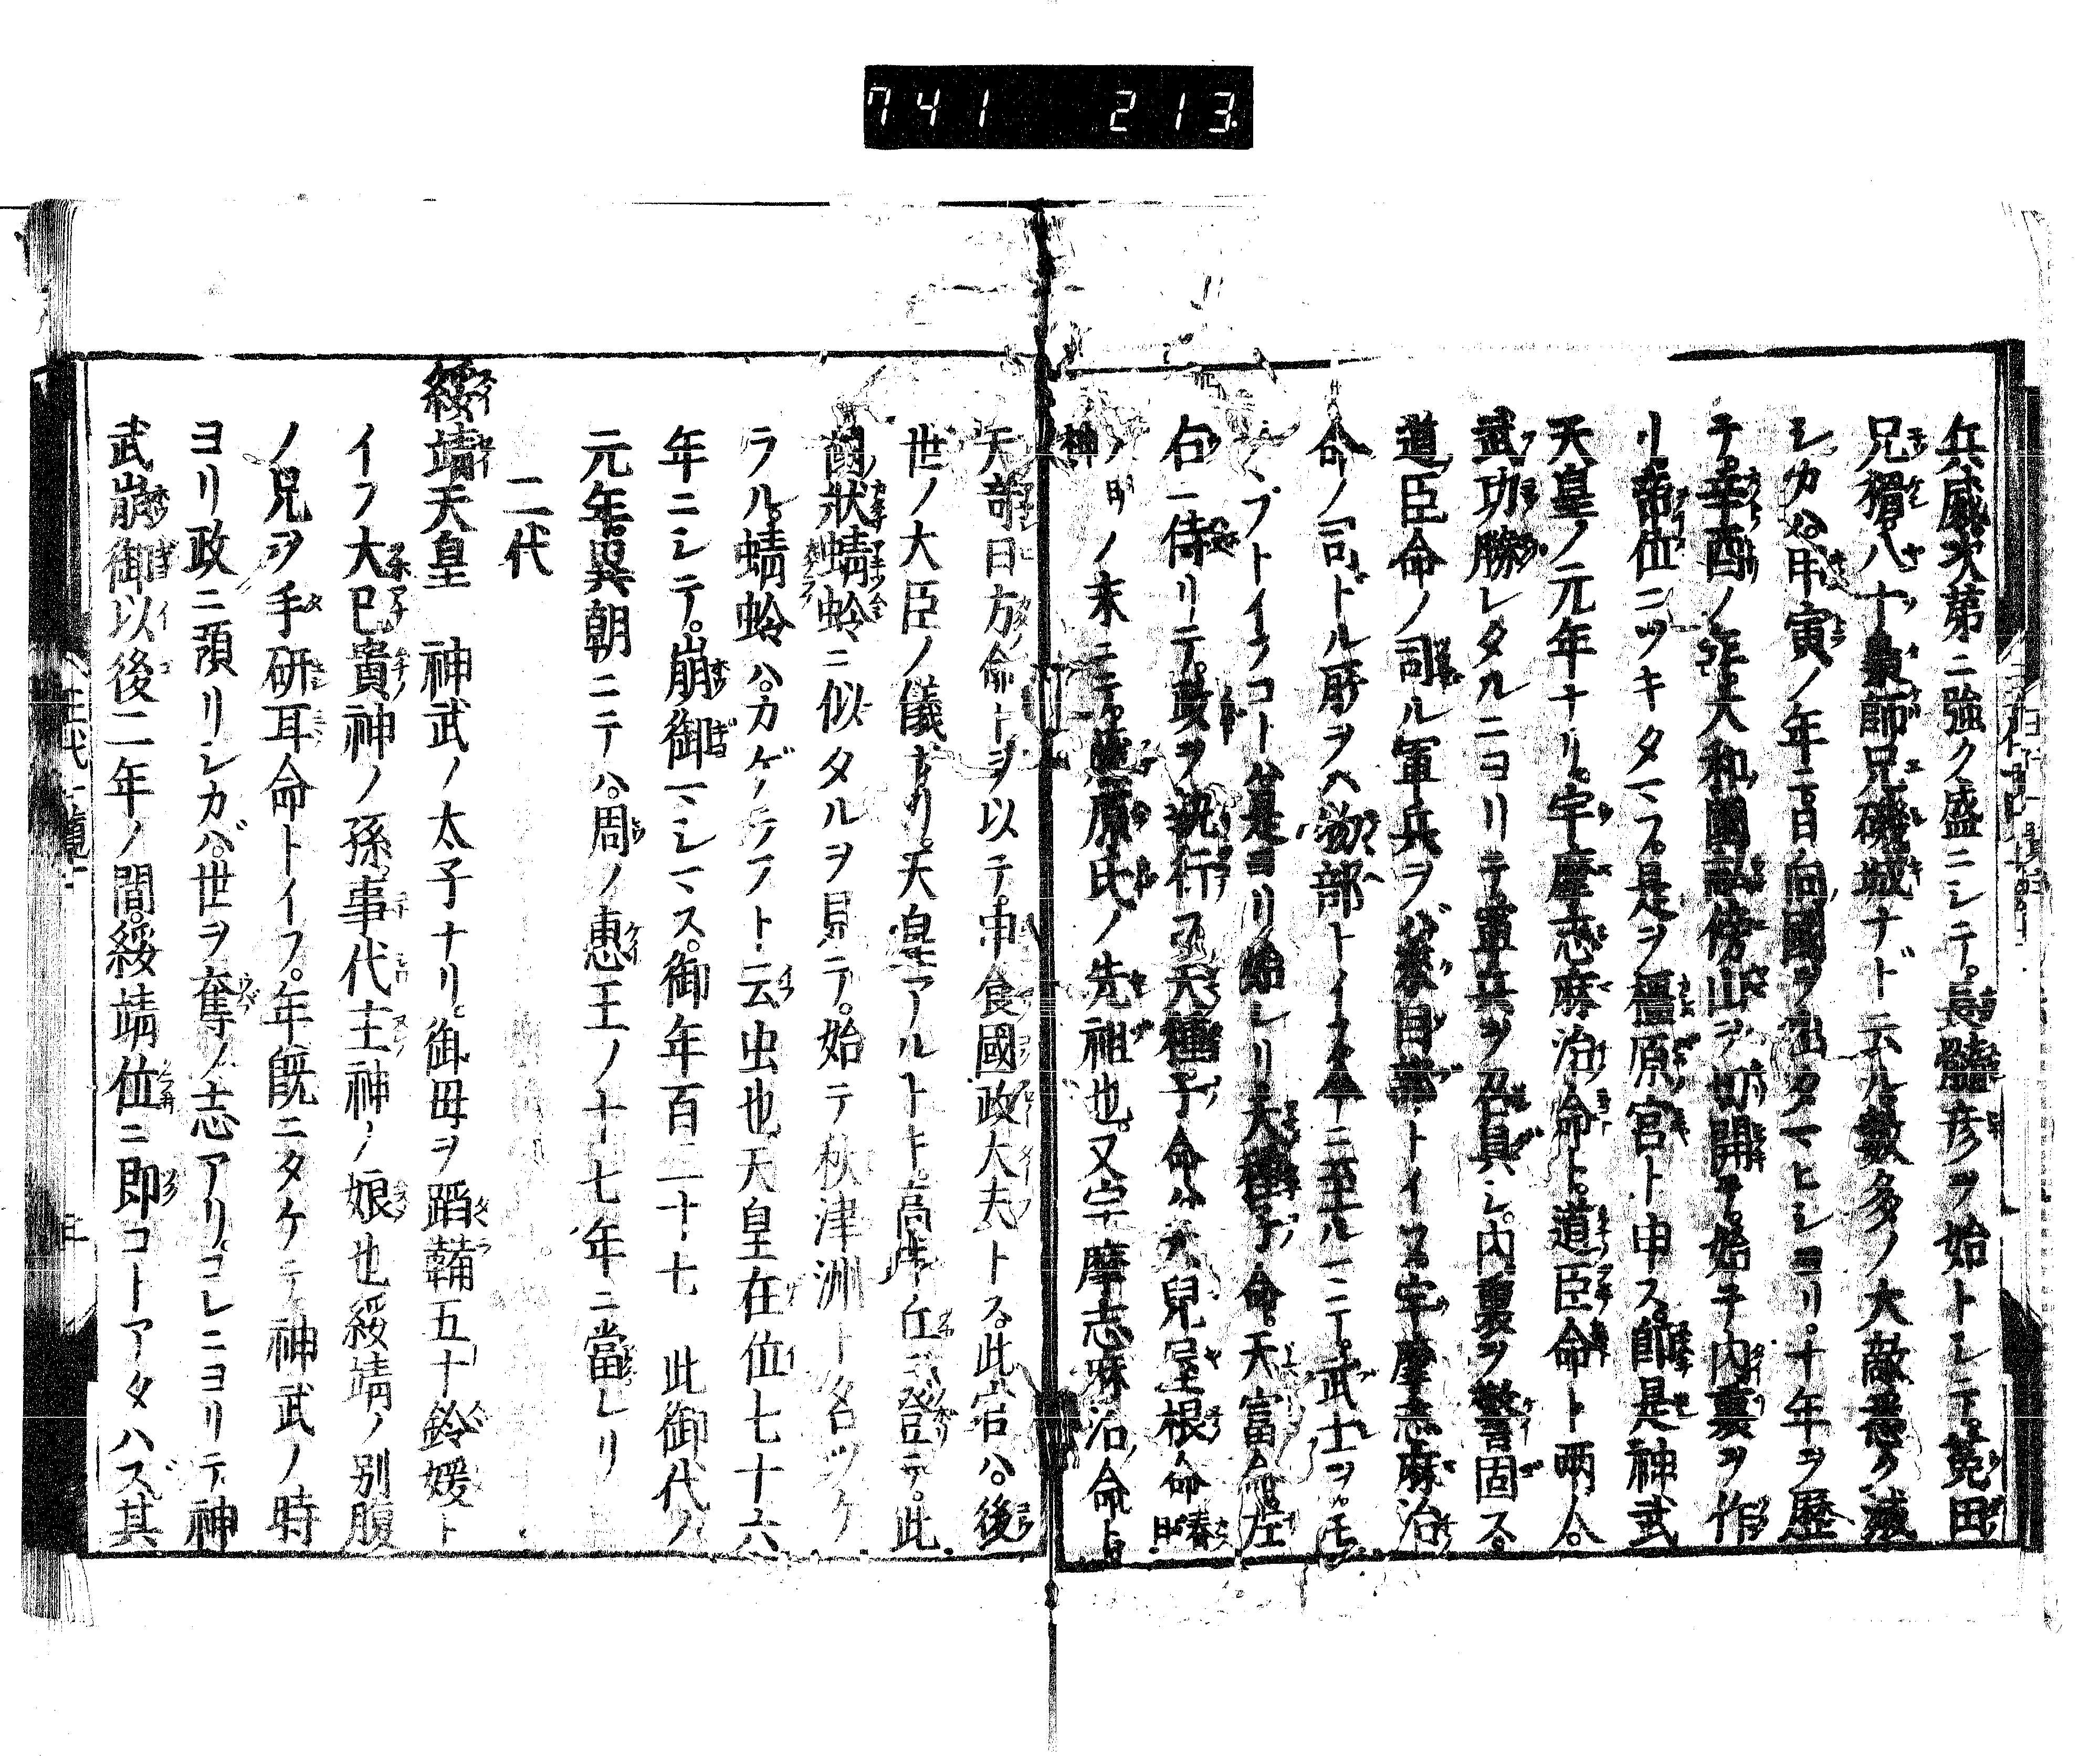 741 213
兵威次第ニ強ク盛ニシテ。長髄彦ヲ始トシテ。菟田
兄猾。八十梟師兄磯城ナド云ル數多ノ大敵悉ク滅
シカバ。甲寅ノ年ニ日向國ヲ出タマヒシヨリ。十年ヲ歴
テ。辛酉ノ年。大和國畝傍山ヲ切開テ。始テ内裏ヲ作
リ帝位ニツキタマフ。是ヲ橿原宮ト申ス。即是神武
天皇ノ元年ナリ。宇摩志麻治命ト。道臣命ト兩人。
武功勝レタルニヨリテ。軍兵ヲ召具シ。内裏ヲ警固ス。
道臣命ノ司ル軍兵ヲバ來目部トイフ。宇摩志麻治
命ノ司ドル所ヲハ物部トイフ。今ニ至ルニテ。武士ヲモ
ノヽブトイフコト。是ヨリ始レリ。天種子命。天富命。左
右ニ侍リテ。政ヲ執行フ。天種子命ハ天兒屋根命。春日
神ノ末ニテ。藤原氏ノ先祖也。又宇摩志麻治命ト
天部日方命トヲ以テ。申食國政大夫トス。此官ハ。後
世ノ大臣ノ儀ナリ。天皇アルトキ。高キ丘ニ登テ。此
國狀蜻蛉ニ似タルヲ見テ。始テ秋津洲ト名ツケ
ラル。蜻蛉ハ。カゲノテフト云虫也。天皇在位七十六
年ニシテ。崩御マシマス。御年百二十七 此御代ノ
元年。異朝ニテハ。周ノ惠王ノ十七年ニ當レリ
二代
綏靖天皇 神武ノ太子ナリ。御母ヲ蹈鞴五十鈴媛ト
イフ大己貴神ノ孫事代主神ノ娘也綏靖ノ別腹
ノ兄ヲ手研耳命トイフ。年既ニタケテ神武ノ時
ヨリ政ニ預リシカバ。世ヲ奪ノ志アリ。コレニヨリテ神
武崩御以後二年ノ間。綏靖位ニ即コトアタハズ其